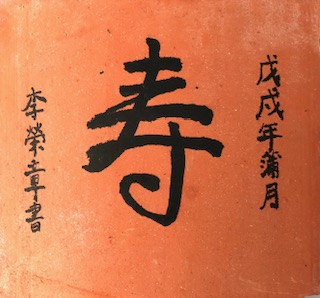 戊戌年蒲月
寿
李榮章書